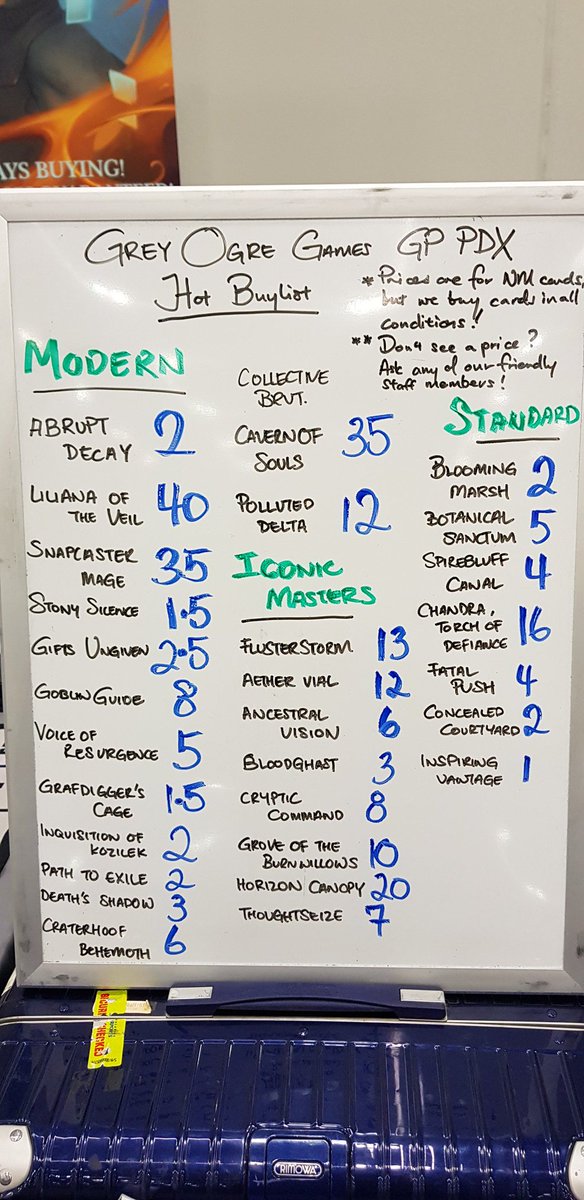 AYS BUYING!
GREY OGRE GAMES GP PDX
HOT BUYLIST
* Prices are for NM cards,
but we buy cards in all
conditions!
** Don't see a price?
Ask any of our friendly
staff members!
MODERN
ABRUPT
DECAY 2
LILIANA OF
THE VEIL 40
SNAPCASTER
MAGE 35
STONY SILENCE 1.5
GIFTS UNGIVEN 2.5
GOBLIN GUIDE 8
VOICE OF
RESURGENCE 5
GRAFDIGGER'S
CAGE 1.5
INQUISITION OF
KOZILEK 2
PATH TO EXILE 2
DEATH'S SHADOW 3
CRATERHOOF
BEHEMOTH 6
COLLECTIVE
BRUT.
CAVERN OF
SOULS 35
POLLUTED
DELTA 12
ICONIC
MASTERS
FLUSTERSTORM 13
AETHER VIAL 12
ANCESTRAL
VISION 6
BLOODGHAST 3
CRYPTIC
COMMAND 8
GROVE OF THE
BURNWILLOWS 10
HORIZON CANOPY 20
THOUGHTSEIZE 7
STANDARD
BLOOMING
MARSH 2
BOTANICAL
SANCTUM 5
SPIREBLUFF
CANAL 4
CHANDRA,
TORCH OF
DEFIANCE 16
FATAL
PUSH 4
CONCEALED
COURTYARD 2
INSPIRING
VANTAGE 1
RIMOWA